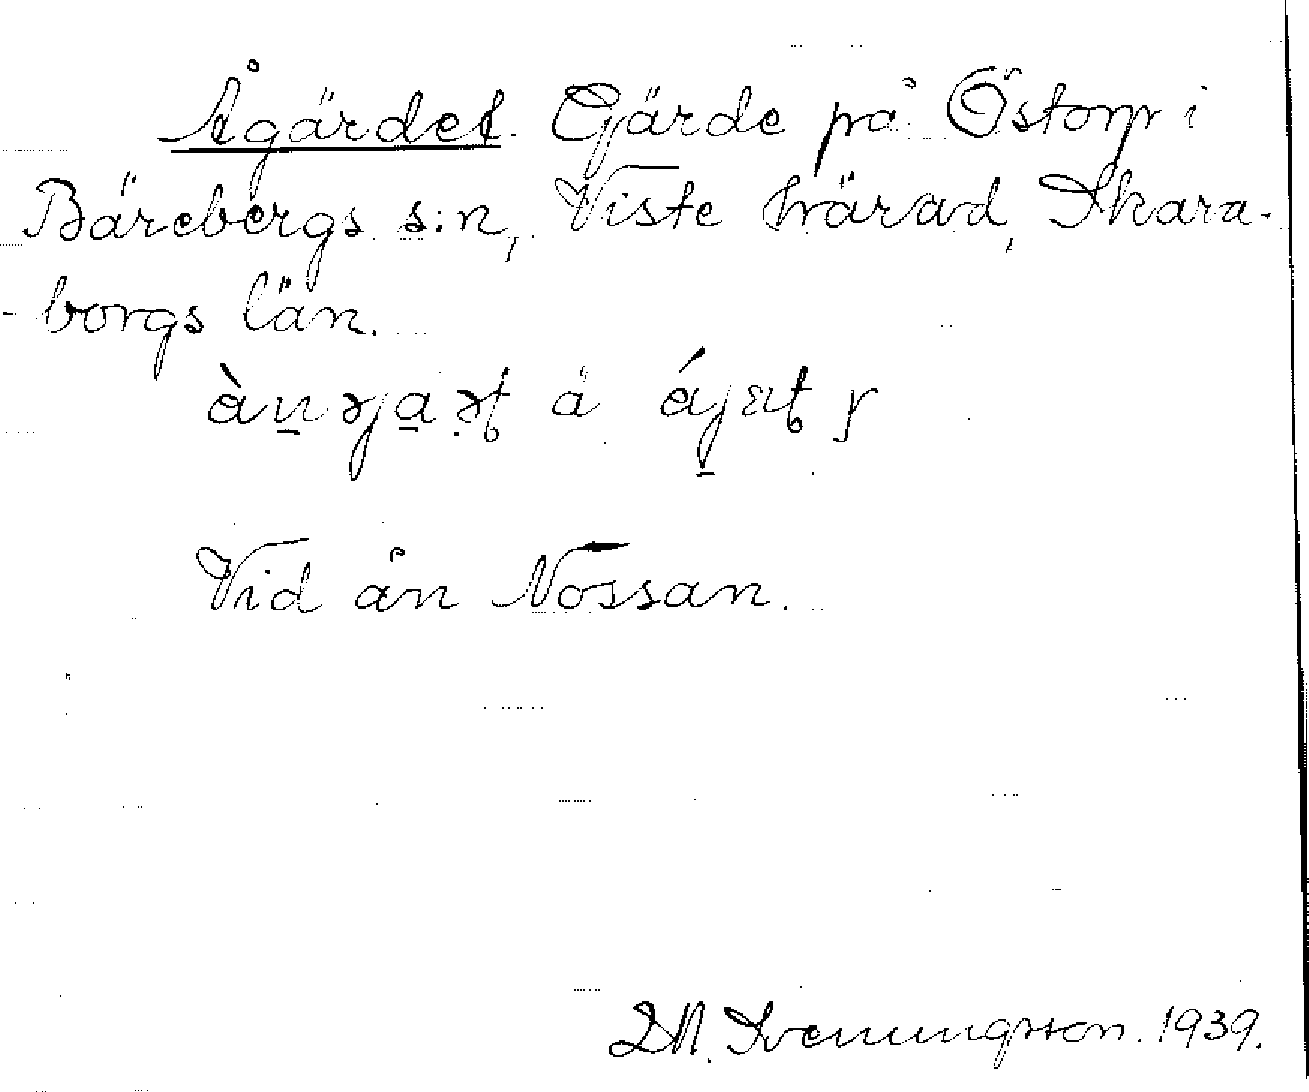 Ågärdet. Gärde på Östorp i
Bärebergs s:n, Viste härad, Skara-
-borgs län.
å
Vid ån Nossan.
Svenningsson. 1939.